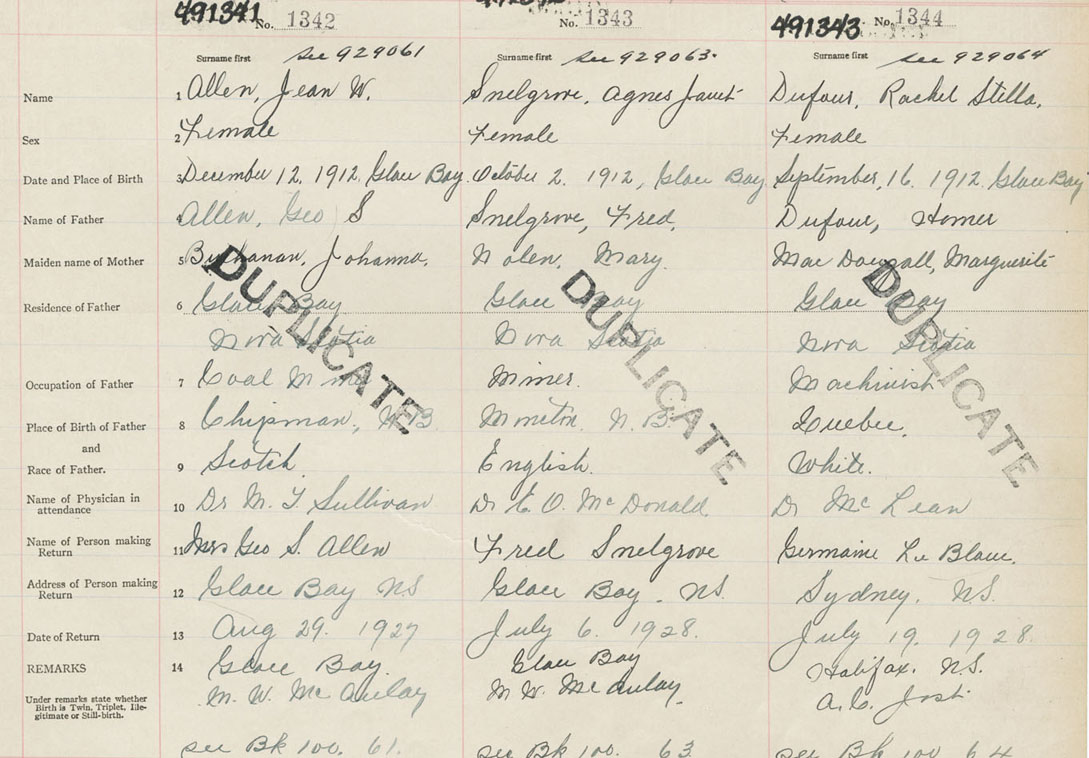 491341 No. 1342
No. 1343
491343 No. 1344
Surname first see 929061
Surname first see 929063.
Surname first see 929064
Name 1 Allen, Jean W. Snelgrove, Agnes Janet Dufour, Rachel Stella.
Sex 2 Female Female Female
Date and Place of Birth 3 December 12. 1912. Glace Bay. October 2. 1912, Glace Bay September, 16. 1912. Glace Bay
Name of Father 4 Allen, Geo S Snelgrove, Fred, Dufour, Homer
Maiden name of Mother 5 Buchanan, Johanna. Nolen, Mary. Mac Dougall, Marguerite
Residence of Father 6 Glace Bay Glace Bay Glace Bay
Nova Scotia Nova Scotia Nova Scotia
Occupation of Father 7 Coal Miner Miner. Machinist
Place of Birth of Father 8 Chipman, N.B. Moncton, N.B. Quebec.
and
Race of Father. 9 Scotch English. White.
Name of Physician in attendance 10 Dr M. T. Sullivan Dr E. O. McDonald Dr McLean
Name of Person making Return 11 Mrs Geo S. Allen Fred Snelgrove Germaine Le Blanc.
Address of Person making Return 12 Glace Bay NS Glace Bay. NS. Sydney. N.S.
Date of Return 13 Aug 29. 1927 July 6. 1928. July 19. 1928.
REMARKS 14 Glace Bay. Glace Bay Halifax. N.S.
Under remarks state whether Birth is Twin, Triplet, Ille-gitimate or Still-birth. M. W. McAulay M. W. McAulay. A. C. Jost
see Bk 100. 61. see Bk 100. 63 see Bk 100 64
DUPLICATE DUPLICATE DUPLICATE